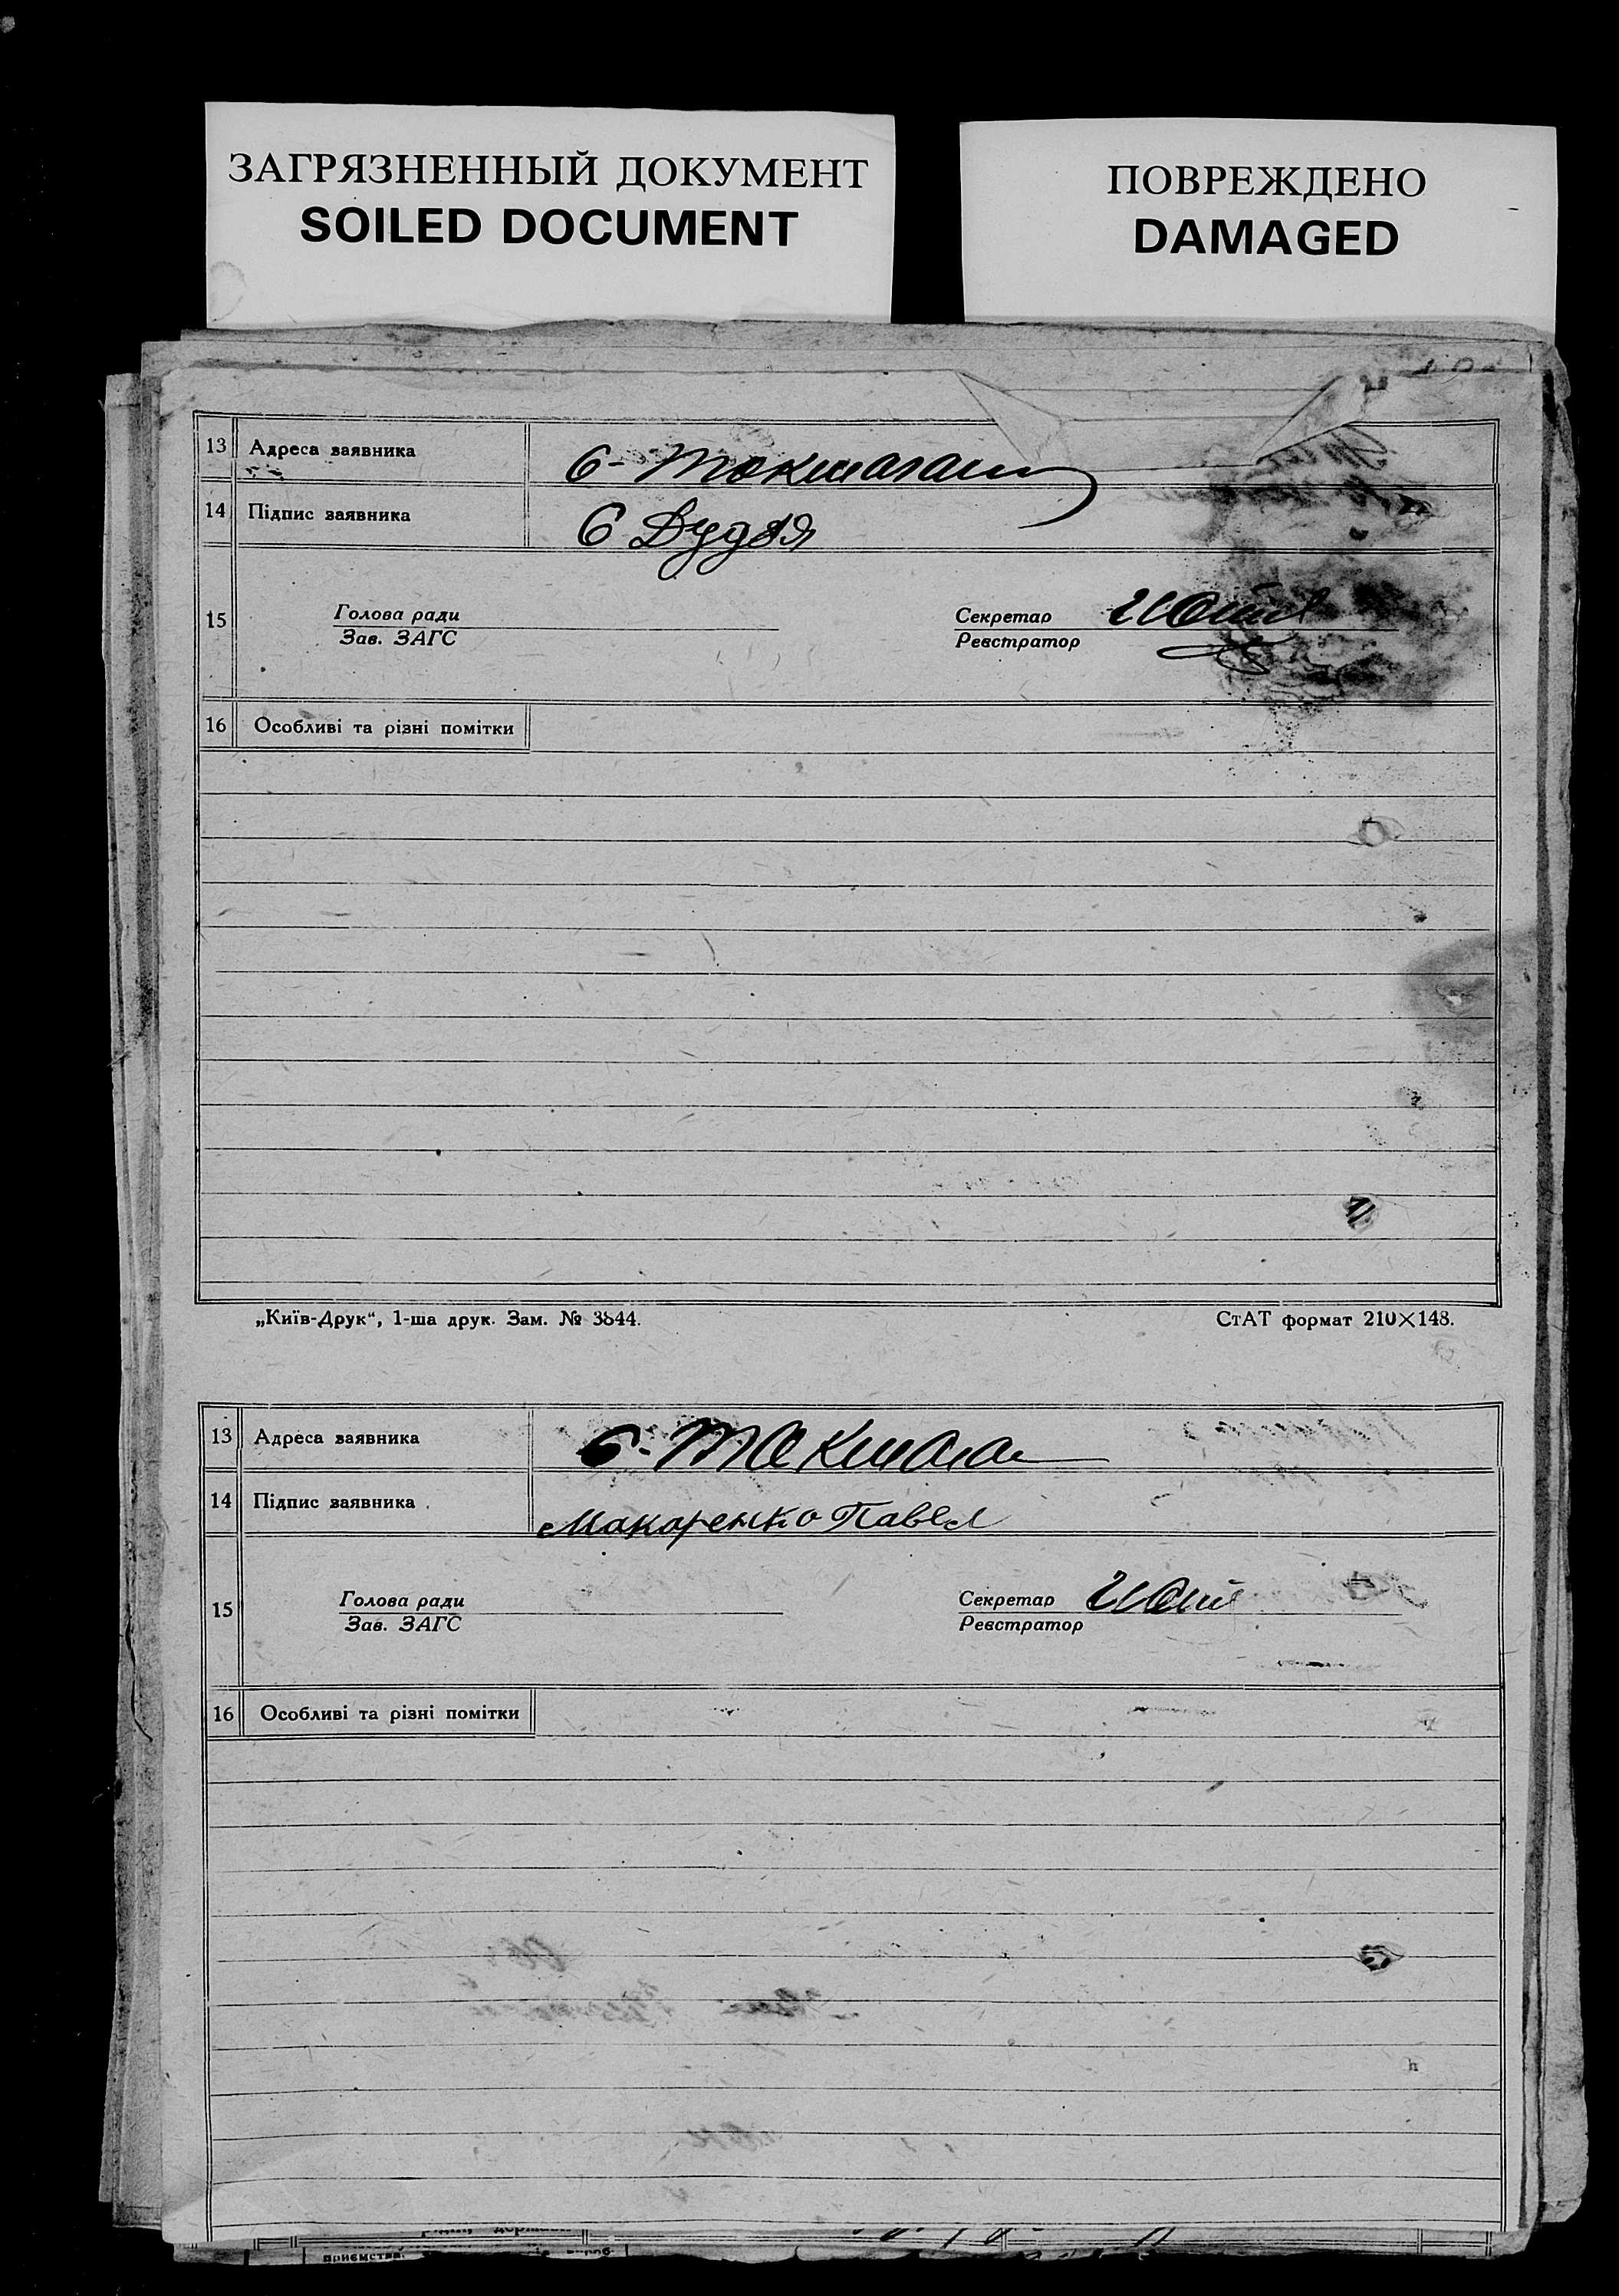 ЗАГРЯЗНЕННЫЙ ДОКУМЕНТ
SOILED DOCUMENT
ПОВРЕЖДЕНО
DAMAGED
13 Адреса заявника
14 Підпис заявника
15 Голова ради
Зав. ЗАГС
Секретар
Реєстратор
16 Особливі та різні помітки
„Київ-Друк“, 1-ша друк. Зам. № 3844. СтАТ формат 210×148.
13 Адреса заявника
14 Підпис заявника Макаренко Павел
15 Голова ради
Зав. ЗАГС
Секретар
Реєстратор
16 Особливі та різні помітки